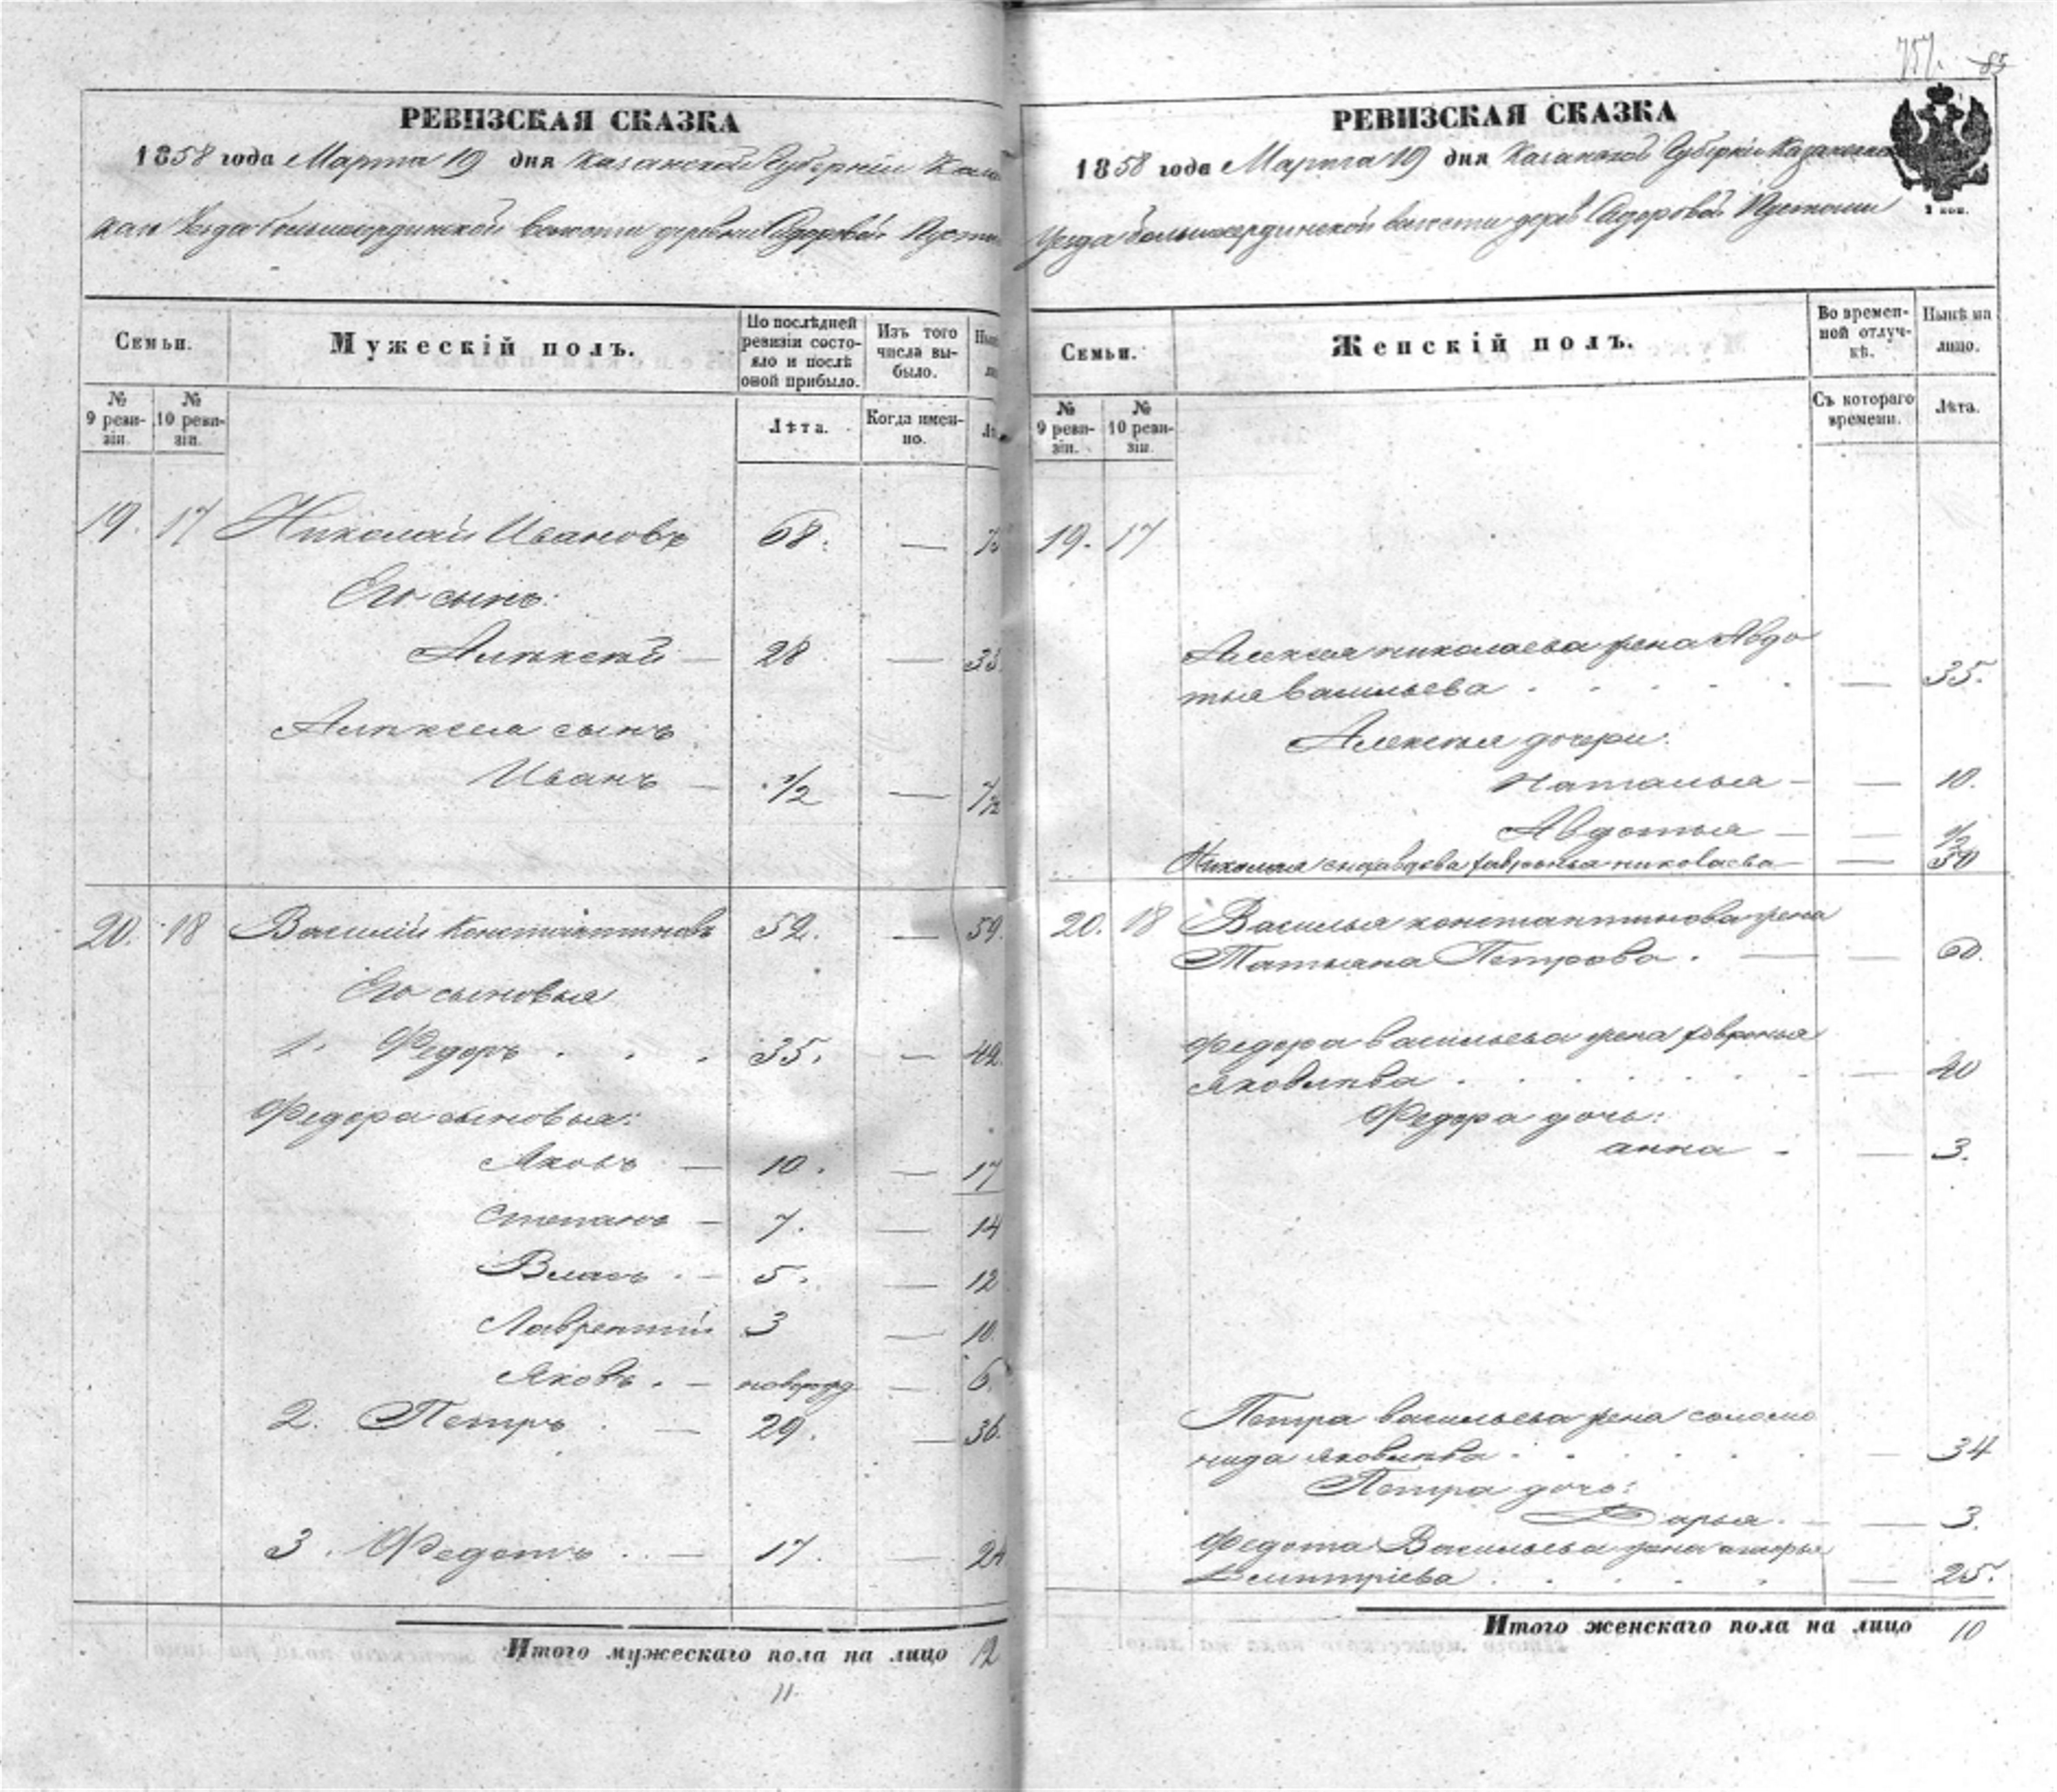 757. 85
РЕВИЗСКАЯ СКАЗКА
1858 года Марта 19 дня Казанской Губерніи Казан
скаго Уезда Большекординской волости деревни Сидоровой Пусто
Семьи.
Мужескій полъ.
По послѣдней ревизіи состояло и послѣ оной прибыло.
Изъ того числа выбыло.
№ 9 ревизіи.
№ 10 ревизіи.
Лѣта.
Когда именно.
19. 17 Николай Ивановъ 68. —
Его сынъ:
Алексѣй — 28 — 35
Алексея сынъ
Иванъ — 1/2 — 7 1/2
20. 18 Василій Константиновъ 52. — 59.
Его сыновья
1. Федоръ . . . 35. — 42.
Федора сыновья:
Яковъ — 10. — 17
Степанъ — 7. — 14
Власъ . — 5. — 12
Лаврентий 3 — 10.
Яковъ . — новорожд — 6.
2. Петръ . — 29. — 36.
3. Федотъ . — 17. — 24
Итого мужескаго пола на лицо 12
11.
РЕВИЗСКАЯ СКАЗКА
1858 года Марта 19 дня Казанской Губерніи Казанскаго
Уезда Большекординской волости дерев Сидоровой Пустоши
Семьи.
Женскій полъ.
Во временной отлучкѣ.
Нынѣ на лицо.
№ 9 ревизіи.
№ 10 ревизіи.
Съ котораго времени.
Лѣта.
19. 17
Алексея николаева жена Авдо
тья васильева . . . . . — 35.
Алексея дочери:
Наталья — — 10.
Авдотья — — 1/2
Николая снха вдова февронья николаева — — 50
20. 18 Василья константинова жена
Татьяна Петрова . — — 60.
Федора васильева жена февронья
яковлева . . . . . . — 40
Федора дочь:
анна . — 3.
Петра васильева жена соломо
нида яковлева . . . . . — 34
Петра дочь:
Дарья . — — 3.
Федота Васильева жена
Дмитріева . . . . . — 25.
Итого женскаго пола на лицо 10